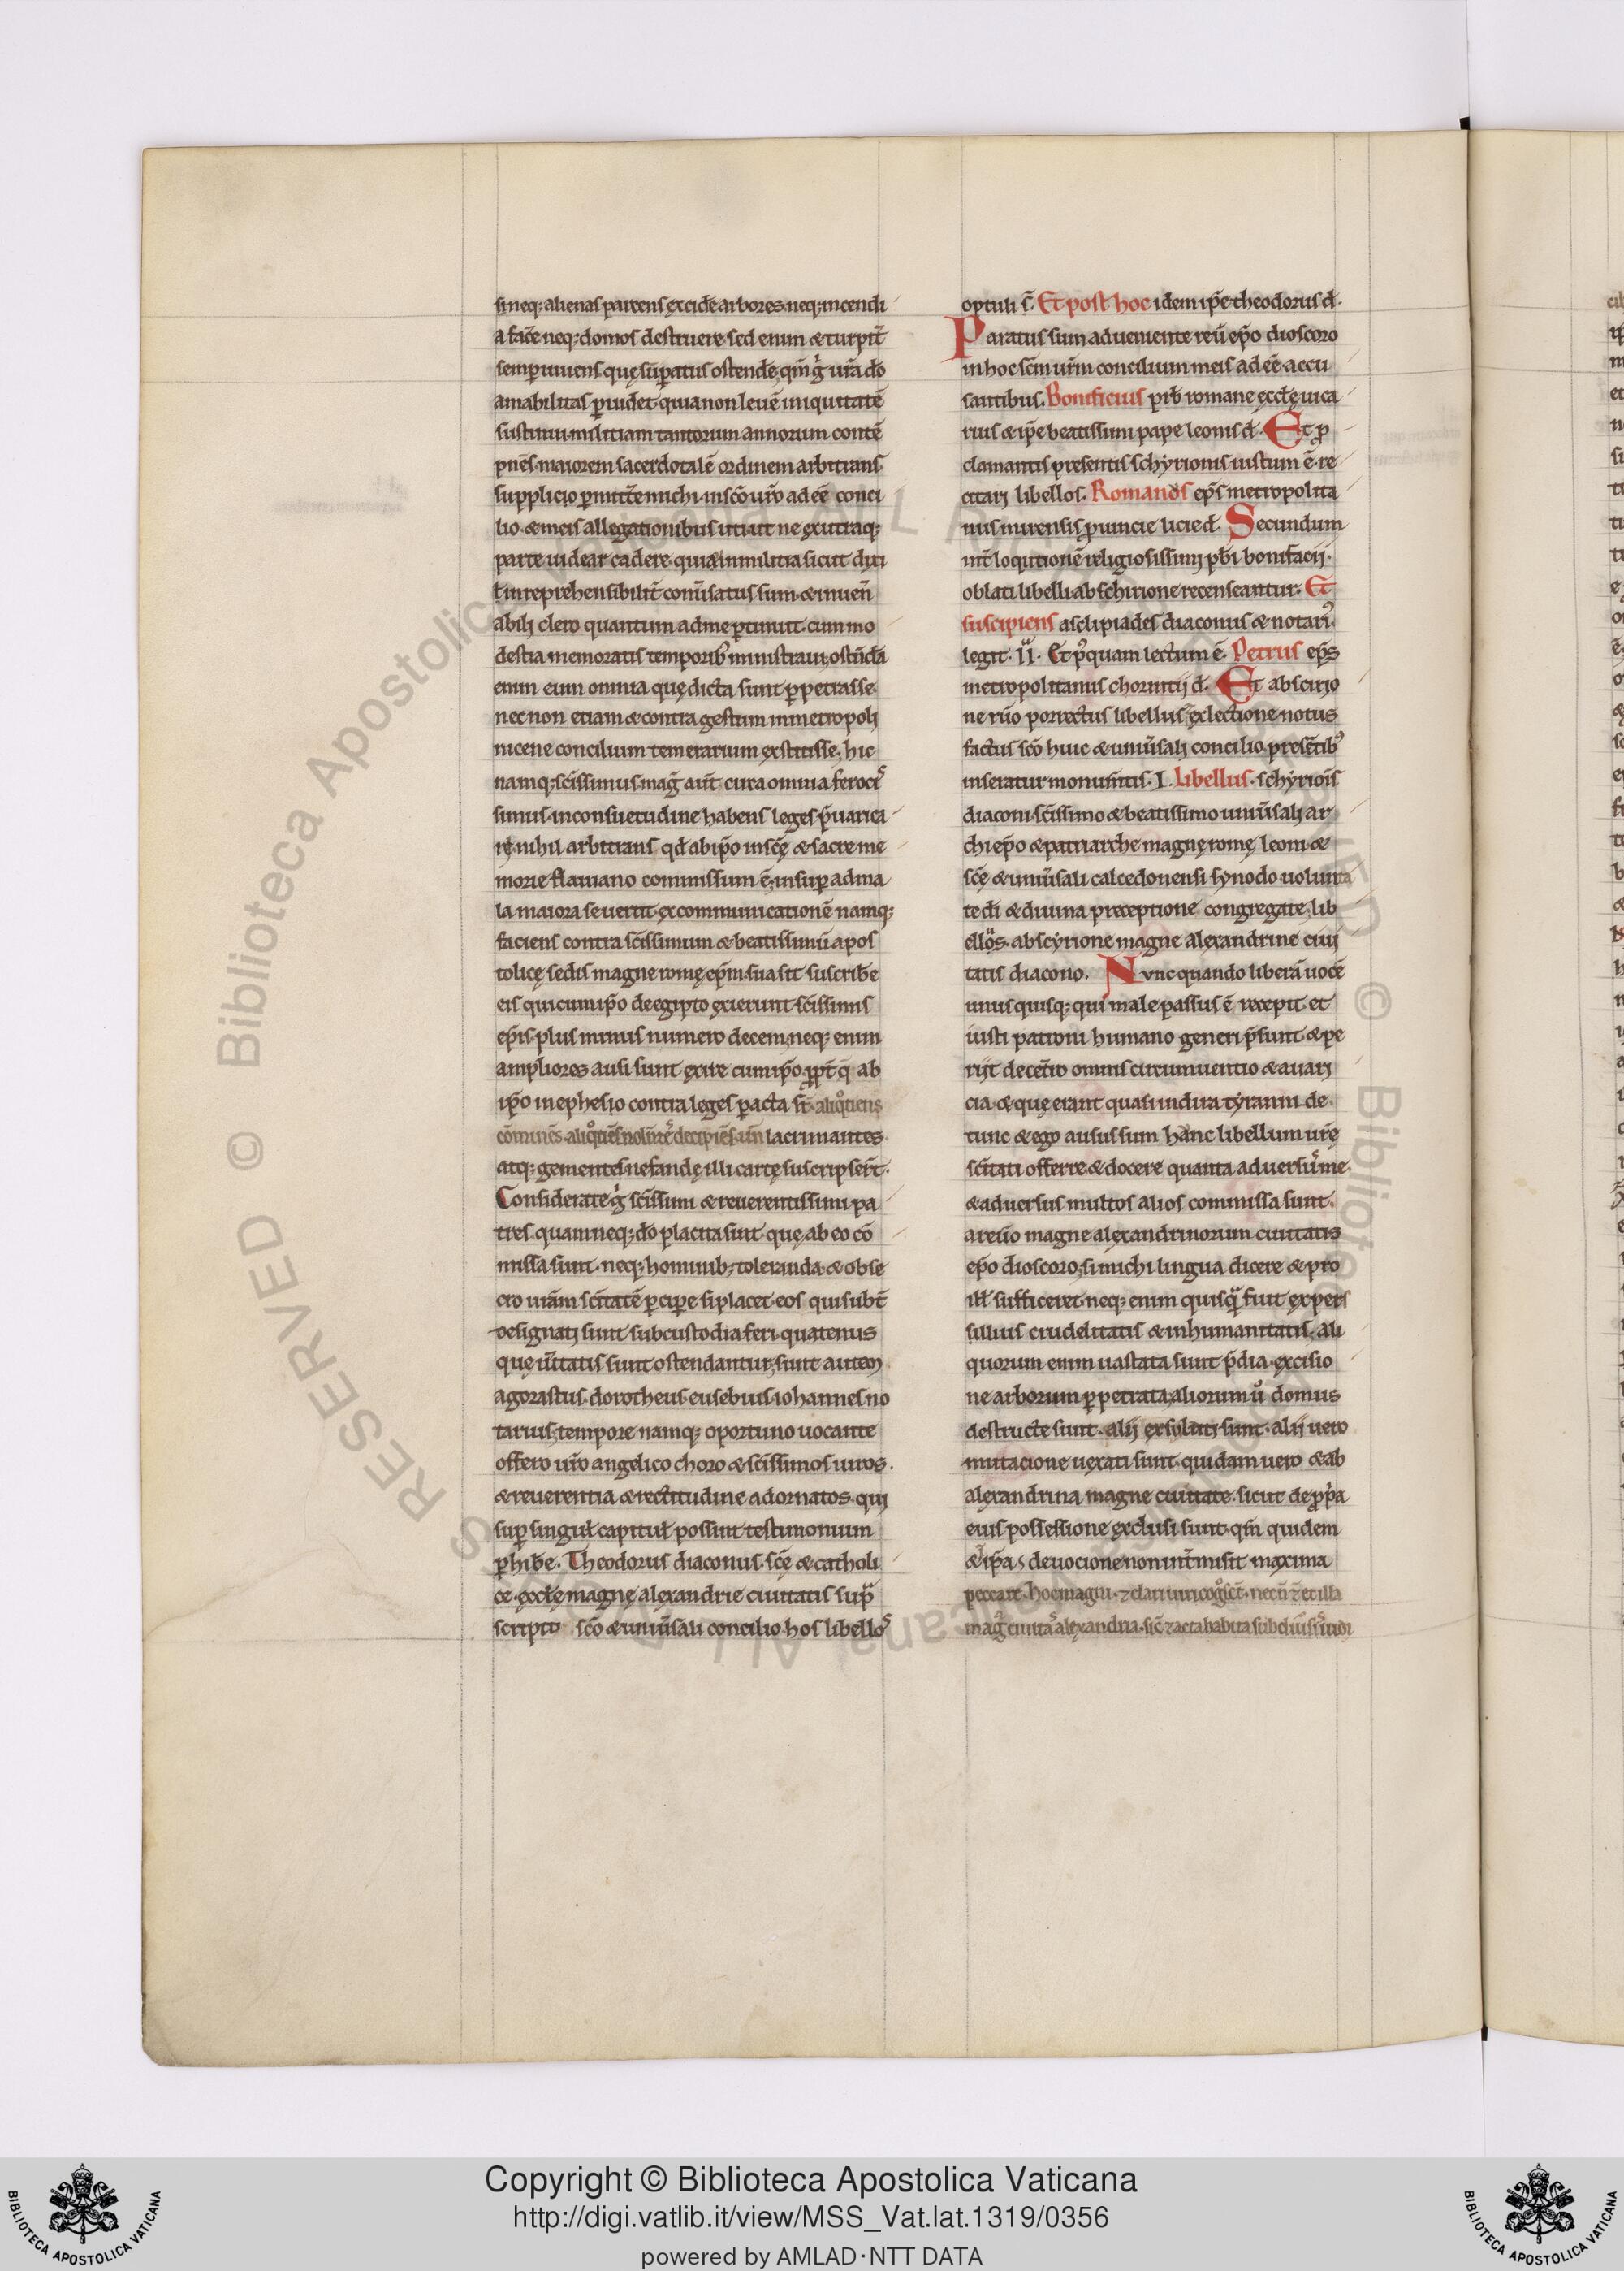 si neq; alienas parcens excidē arbores. neq; incendi
a facē neq; domos destruere. sed enim & turpit̄
semp uiuens. quę sup̄atus ostende, qm̄ g̊ ur̄a do
amabilitas p̄uidet. quia non leuē iniquitatē
sustinui. militiam tantorum annorum contē
pnēs. maiorem sacerdotalē ordinem arbitrans.
supplicio p̄mittē michi. in sc̄o ur̄o ad eē conci
lio. & meis allegationibus uti. ut ne ex utraq;
parte uidear cadere. quia in militia sicut dixi
t̄ inreprehensibilit̄ conūsatus sum. & in uen̄
abili clero quantum ad me p̄tinuit. cum mo
destia memoratis temporib; ministraui. ostn̄da
enim eum omnia quę dicta sunt p̄petrasse.
nec non etiam & contra gestum in metropoli
nicene concilium temerarium exstitisse. hic
namq; sc̄issimus. mag̊ aut̄ circa omnia feroci
simus. in consuetudine habens leges p̄uarica
ri. nihil arbitrans qd̄ ab ip̄o in sc̄ę & sacre me
morie flauiano commissum ē. insup ad ma
la maiora se uertit. excommunicationē namq;
faciens contra sc̄issimum & beatissimū apos
tolicę sedis magne romę ep̄m. suasit suscribe
eis qui cum ip̄o de egipto exierunt sc̄issimis
ep̄is. plus minus numero decem. neq; enim
ampliores ausi sunt exire cum ip̄o. ppt̄ q̄ ab
ip̄o in ephesio contra leges pacta st̄. aliqotiens
lacrimantes.
atq; gementes nefandę illi carte suscripsert̄.
Considerate g̊ sc̄issimi & reuerentissimi pa
tres. quam neq; dō placita sint. quę ab eo cō
missa sunt. neq; hominib; toleranda. & obse
cro ur̄am sc̄itatē p̄cipe si placet. eos qui subt̄
designati sunt sub custodia feri. quatenus
quę ūitatis sunt ostendantur. sunt autem
agorastus. dorotheus. eusebius. iohannes no
tarius. tempore namq; oportuno uocante
offero ur̄o angelico choro & sc̄issimos uiros.
& reuerentia & rectitudine adornatos. qui
sup singul̄ capitul̄ possint testimonium
p̄hibe. Theodorus diaconus. sc̄ę & catholi
ce. eccl̄ę magnę alexandrie ciuitatis sup̄
scripto sc̄o & uniūsali concilio. hos libellos
optuli s̄. Et post hoc idem ip̄e theodorus d̄.
Paratus sum aduemente reū ep̄o dioscoro
in hoc sc̄m ur̄m concilium meis ad eē accu
santibus. Bonificius prb̄ romane eccl̄ę uica
rius & ip̄e beatissimi pape leonis d̄. Et p
clamantis presentis schyrionis iustum ē. re
citari libellos. Romanus ep̄s metropolita
nus mirensis puincie licie d̄. Secundum
int̄loqutionē religiosissimi pb̄ri bonifacii.
oblati libelli ab schirione recenseantur. Et
suscipiens asclipiades diaconus & notari᷒
legit. II. Et p᷒quam lectum ē. Petrus ep̄s
metropolitanus chorintij d̄. Et ab scirio
ne rū̄o porrectus libellus ex lectione notus
factus sc̄o huic & uniūsali concilio. presētib᷒
inseratur monumtis. I. libellus. schyriois̄
diaconi. sc̄issimo & beatissimo uniūsali ar
chiep̄o & patriarche magnę romę leoni &
sc̄ę & uniūsali calcedonensi synodo uolunta
te dī & diuina preceptione congregate. lib
ellus. ab scyrione magne alexandrine ciui
tatis diacono. Nunc quando liberā uocē
unus quisq; qui male passus ē recepit. et
iusti patroni humano generi p̄sunt. & pe
rijt de cet̄ro omnis circumuentio & auari
cia. & quę erant quasi in dira tyranni de.
tunc & ego ausus sum hanc libellum ur̄ę
sc̄itati offerre & docere quanta aduersū me.
& aduersus multos alios commissa sunt.
a reū̄o magne alexandrinorum ciuitatis
ep̄o dioscoro. si michi lingua dicere & pro
ill̄ sufficeret. neq; enim quisq̄ fuit expers
sillius crudelitatis & inhumanitatis. ali
quorum enim uastata sunt p̄dia. excisio
ne arborum p̄petrata. aliorum ů domus
destructe sunt. alij exsulati sunt. alij uero
mutacione uexati sunt. quidam uero & ab
alexandrina magne ciuitate. sicut de pp̄a
eius possessione exclusi sunt. qm̄ quidem
& ip̄as deuocione non int̄misit maxima
peccare. hoc magni. & clari uiri. nec n̄ & et illa
mag̊ ciuita᷒ alexandria. sic̄ & acta habita sub
Copyright © Biblioteca Apostolica Vaticana
http://digi.vatlib.it/view/MSS_Vat.lat.1319/0356
powered by AMLAD·NTT DATA